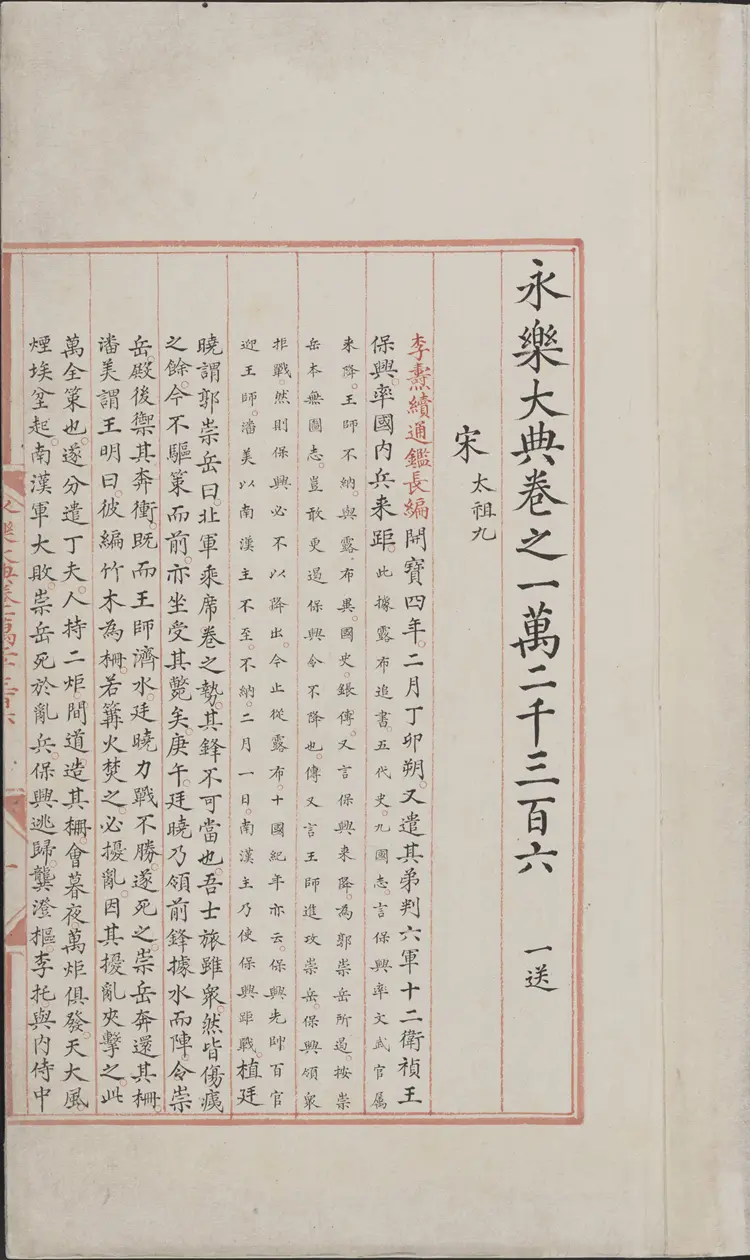 永樂大典卷之一萬二千三百六 一送
宋 太祖九
李燾續通鑑長編開寶四年。二月丁卯朔。又遣其弟判六軍十二衛禎王
保興。率國內兵来距。此據露布追書。五代史。九國志。言保興率文武官属
来降。王師不納。與露布異。國史。鋹傳。又言保興来降。為郭崇岳所遏。按崇
岳本無鬬志。豈敢更遏保興令不降也。傳又言王師進攻崇岳。保興領衆
拒戰。然則保興必不以降出。今止從露布。十國紀年亦云。保興先帥百官
迎王師。潘美以南漢主不至。不納。二月一日。南漢主乃使保興距戰。植廷
曉謂郭崇岳曰。北軍乘席卷之勢。其鋒不可當也。吾士旅雖衆。然皆傷痍
之餘。今不驅策而前。亦坐受其斃矣。庚午。廷曉乃領前鋒據水而陣。令崇
岳。殿後禦其奔衝。既而王師濟水。廷曉力戰不勝。遂死之。崇岳奔還其柵。
潘美謂王明曰。彼編竹木為柵。若篝火焚之。必擾亂。因其擾亂夾擊之。此
萬全策也。遂分遣丁夫。人持二炬。間道。造其柵。會暮夜萬炬俱發。天大風
煙埃坌起。南漢軍大敗。崇岳死於亂兵。保興逃歸。龔澄樞。李托。與内侍中